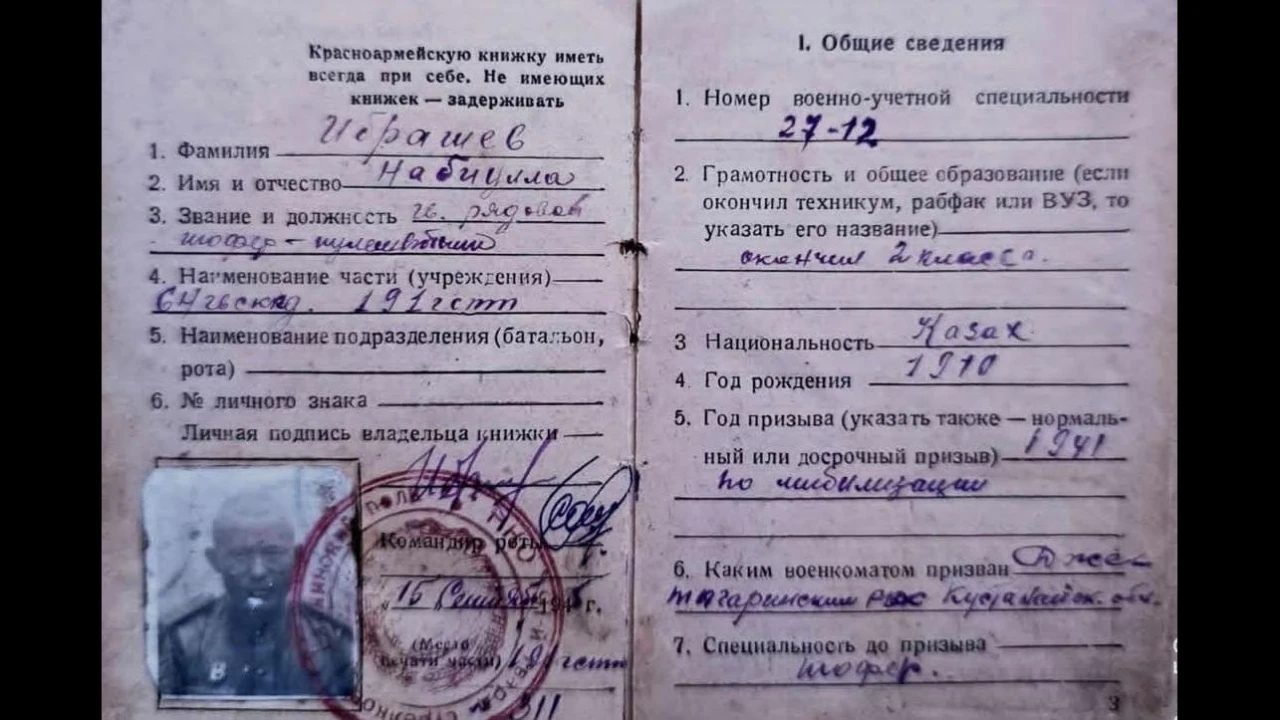 Красноармейскую книжку иметь
всегда при себе. Не имеющих
книжек — задерживать
1. Фамилия Ибрашев
2. Имя и отчество Набиулла
3. Звание и должность гв. рядовой
шофер –
4. Наименование части (учреждения)
64 гв скд. 191 гстп
5. Наименование подразделения (батальон,
рота)
6. № личного знака
Личная подпись владельца книжки
Командир роты
„15 194 г.
(Место
печати части)
I. Общие сведения
1. Номер военно-учетной специальности
27-12
2. Грамотность и общее образование (если
окончил техникум, рабфак или ВУЗ, то
указать его название)
окончил 2 класса.
3 Национальность Казах
4. Год рождения 1910
5. Год призыва (указать также — нормаль-
ный или досрочный призыв) 1941
по мобилизации
6. Каким военкоматом призван Джет
7. Специальность до призыва
шофер.
3